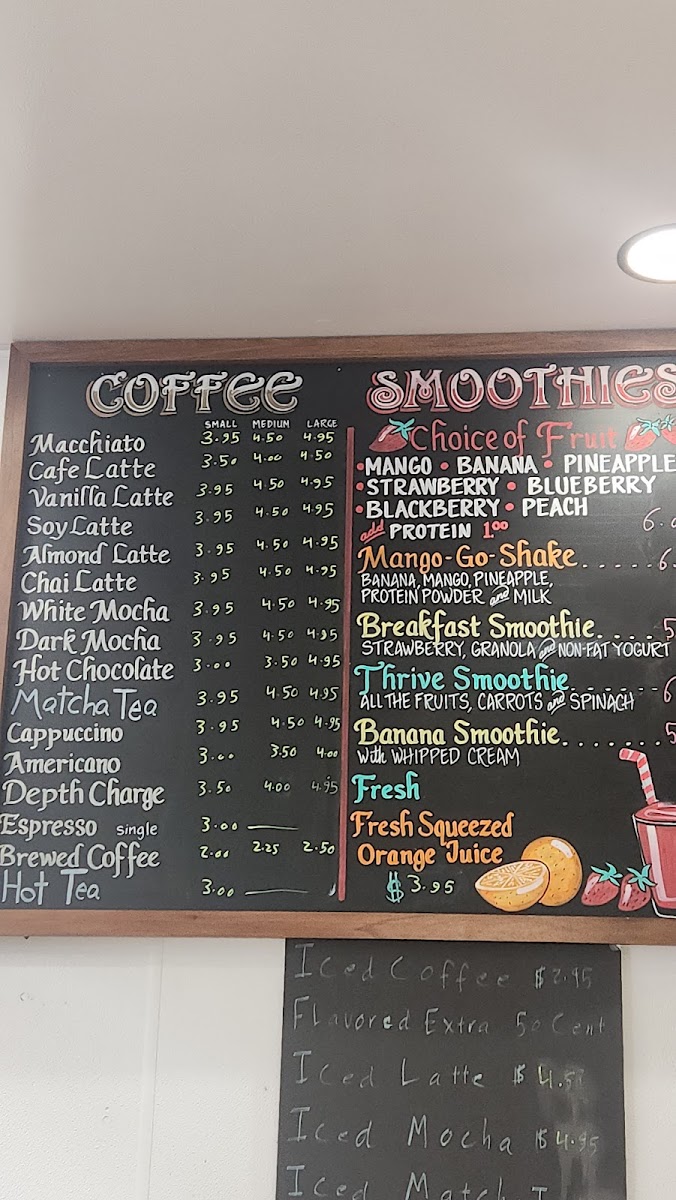 COFFEE
SMALL MEDIUM LARGE
Macchiato 3.95 4.50 4.95
Cafe Latte 3.50 4.00 4.50
Vanilla Latte 3.95 4.50 4.95
Soy Latte 3.95 4.50 4.95
Almond Latte 3.95 4.50 4.95
Chai Latte 3.95 4.50 4.95
White Mocha 3.95 4.50 4.95
Dark Mocha 3.95 4.50 4.95
Hot Chocolate 3.00 3.50 4.95
Matcha Tea 3.95 4.50 4.95
Cappuccino 3.95 4.50 4.95
Americano 3.00 3.50 4.00
Depth Charge 3.50 4.00 4.95
Espresso single 3.00
Brewed Coffee 2.00 2.25 2.50
Hot Tea 3.00
SMOOTHIES
Choice of Fruit
• MANGO • BANANA • PINEAPPLE
• STRAWBERRY • BLUEBERRY
• BLACKBERRY • PEACH
add PROTEIN 1.00
Mango-Go-Shake.....6.
BANANA, MANGO, PINEAPPLE,
PROTEIN POWDER and MILK
Breakfast Smoothie....5
STRAWBERRY, GRANOLA and NON-FAT YOGURT
Thrive Smoothie.......6
ALL THE FRUITS, CARROTS and SPINACH
Banana Smoothie.......5
with WHIPPED CREAM
Fresh
Fresh Squeezed
Orange Juice
$3.95
Iced Coffee $2.95
Flavored Extra 50 Cent
Iced Latte $4.5
Iced Mocha $4.95
Iced Match